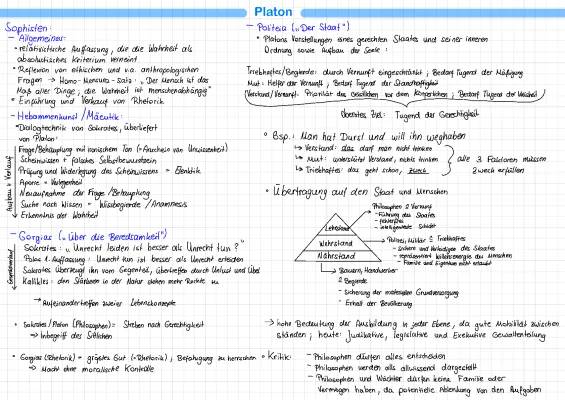 Platon
Sophisten:
- Allgemeines:
• relativistische Auffassung, die die Wahrheit als
absolutistisches Kriterium verneint
• Reflexion von ethischen und v.a. anthropologischen
Fragen → Homo-Mensura-Satz: „Der Mensch ist das
Maß aller Dinge; die Wahrheit ist menschenabhängig"
• Einführung und Verkauf von Rhetorik
- Hebammenkunst / Mäeutik:
• Dialogtechnik von Sokrates, überliefert
von Platon:
Aufbau + Verlauf
Frage/Behauptung mit ironischem Ton (= Anschein von Unwissenheit)
Scheinwissen + falsches Selbstbewusstsein
Prüfung und Widerlegung des Scheinwissens = Elenktik
Aporie = Verlegenheit
Neuaufnahme der Frage/Behauptung
Suche nach Wissen = Wissbegierde / Anamnesis
Erkenntnis der Wahrheit
- Gorgias („Über die Beredsamkeit")
Sokrates: „Unrecht leiden ist besser als Unrecht tun?"
Polos 1. Auffassung: Unrecht tun ist besser als Unrecht erleiden
Sokrates überzeugt ihn vom Gegenteil, überliefern durch Unlust und Übel
Kallikles: den Stärkeren in der Natur stehen mehr Rechte zu
→ Aufeinandertreffen zweier Lebenskonzepte
• Sokrates/Platon (Philosophen) = Streben nach Gerechtigkeit
→ Inbegriff des Sittlichen
• Gorgias (Rhetorik) = größtes Gut (=Rhetorik); Befähigung zu herrschen
→ Macht ohne moralische Kontrolle
- Politeia („Der Staat")
• Platons Vorstellungen eines gerechten Staates und seiner inneren
Ordnung sowie Aufbau der Seele:
Triebhaftes/Begierde: durch Vernunft eingeschränkt; Bedarf Tugend der Mäßigung
Mut: Helfer der Vernunft; Bedarf Tugend der Standhaftigkeit
Verstand/Vernunft: Priorität des Geistlichen vor dem Körperlichen; Bedarf Tugend der Weisheit
Oberstes Ziel: Tugend der Gerechtigkeit
• Bsp.: Man hat Durst und will ihn weghaben
↳ Verstand: das darf man nicht trinken
↳ Mut: unterstützt Verstand, nichts trinken
↳ Triebhaftes: das geht schon, zurück
alle 3 Faktoren müssen
Zweck erfüllen
• Übertragung auf den Staat und Menschen
Lehrstand
Wehrstand
Nährstand
Philosophen ≙ Vernunft
- Führung des Staates
- fehlerfrei
- intelligenteste Schicht
Polizei, Militär ≙ Triebhaftes
- Sichern und Verteidigen des Staates
- Familie und Eigentum nicht erlaubt
Bauern, Handwerker
≙ Begierde
- Sicherung der materiellen Grundversorgung
- Erhalt der Bevölkerung
→ hohe Bedeutung der Ausbildung in jeder Ebene, da gute Mobilität zwischen
ständen; heute: Judikative, legislative und Exekutive Gewaltenteilung
• Kritik:
- Philosophen dürfen alles entscheiden
- Philosophen werden als allwissend dargestellt
- Philosophen und Wächter dürfen keine Familie oder
Vermögen haben, da potentielle Ablenkung von den Aufgaben